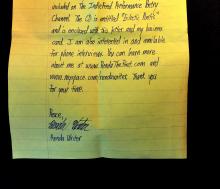 included on the IndieFeed Performance Poetry
Channel. The CD is entitled "Eclectic Poetic"
and is enclosed with this letter and my business
card. I am also interested in and available
for phone interviews. You can learn more
about me at www.RendaThePoet.com and
www.myspace.com/rendawriter. Thank you
for your time.
Peace,
Renda Writer
Renda Writer